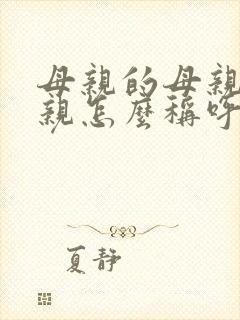 母親的母親
親怎麼稱呼
夏靜